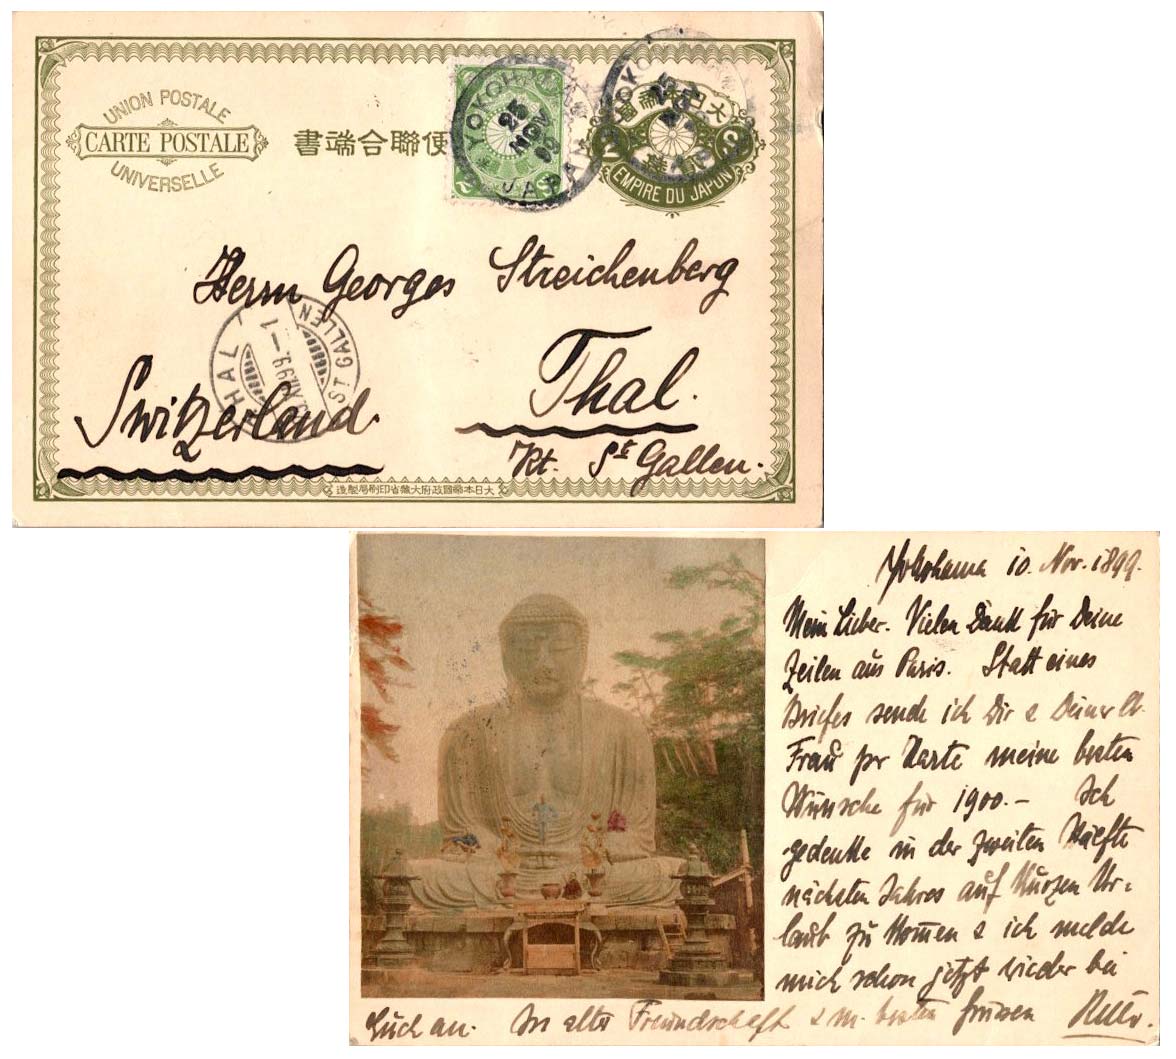 UNION POSTALE
CARTE POSTALE
UNIVERSELLE
書端合聯便
YOKOHAMA
25
NOV
99
JAPAN
2 Sn
大日本帝國
EMPIRE DU JAPON
Herrn Georges Streichenberg
THAL
ST GALLEN
XII.99.–1
Thal.
Switzerland.
Kt. St Gallen.
造製局刷印省蔵大府政國帝本日大
Yokohama 10. Nov. 1899.
Mein Lieber. Vielen Dank für Deine
Zeilen aus Paris. Statt eines
Briefes sende ich Dir & Deiner lb.
Frau pr Karte meine besten
Wünsche für 1900.– Ich
gedenke in der zweiten Hälfte
nächsten Jahres auf kurzen Ur=
laub zu kom̄en & ich melde
mich schon jetzt wieder bei
Euch an. In alter Freundschaft & m. besten Grüssen